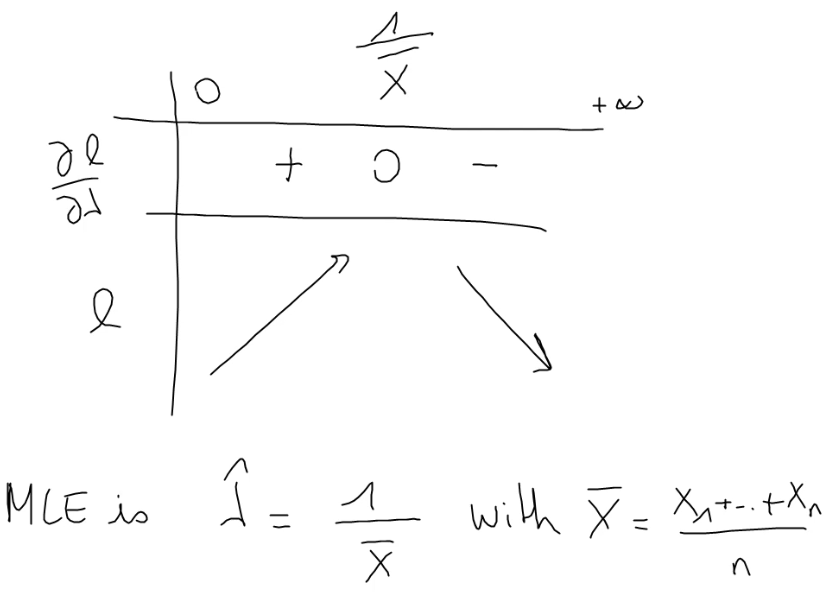 0 1/X̄ +∞
∂ℓ/∂λ + 0 -
ℓ
MLE is λ̂ = 1/X̄ with X̄ = X₁+..+Xₙ/n